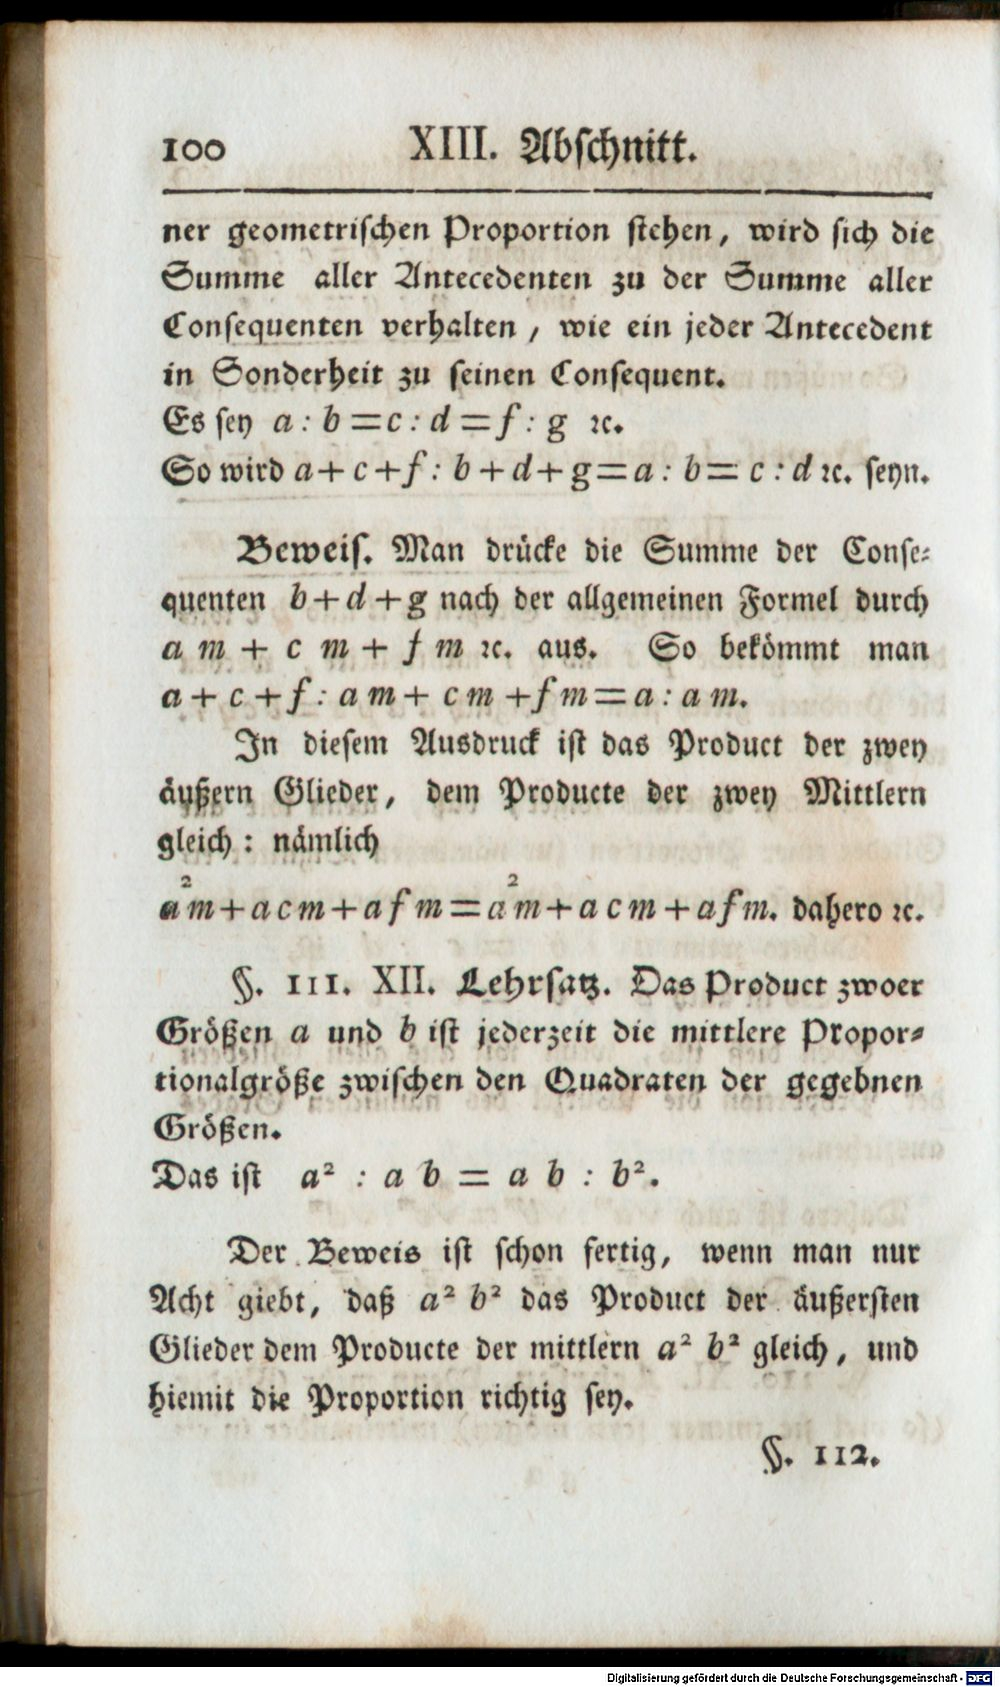 100 XIII. Abschnitt.
ner geometrischen Proportion stehen, wird sich die
Summe aller Antecedenten zu der Summe aller
Consequenten verhalten, wie ein jeder Antecedent
in Sonderheit zu seinen Consequent.
Es sey a : b = c : d = f : g ꝛc.
So wird a + c + f : b + d + g = a : b = c : d ꝛc. seyn.
Beweis. Man drücke die Summe der Conse-
quenten b + d + g nach der allgemeinen Formel durch
a m + c m + f m ꝛc. aus. So bekömmt man
a + c + f : a m + c m + f m = a : a m.
In diesem Ausdruck ist das Product der zwey
äußern Glieder, dem Producte der zwey Mittlern
gleich : nämlich
a² m + a c m + a f m = a² m + a c m + a f m. dahero ꝛc.
§. 111. XII. Lehrsatz. Das Product zwoer
Größen a und b ist jederzeit die mittlere Propor-
tionalgröße zwischen den Quadraten der gegebnen
Größen.
Das ist a² : a b = a b : b².
Der Beweis ist schon fertig, wenn man nur
Acht giebt, daß a² b² das Product der äußersten
Glieder dem Producte der mittlern a² b² gleich, und
hiemit die Proportion richtig sey.
§. 112.
Digitalisierung gefördert durch die Deutsche Forschungsgemeinschaft - DFG